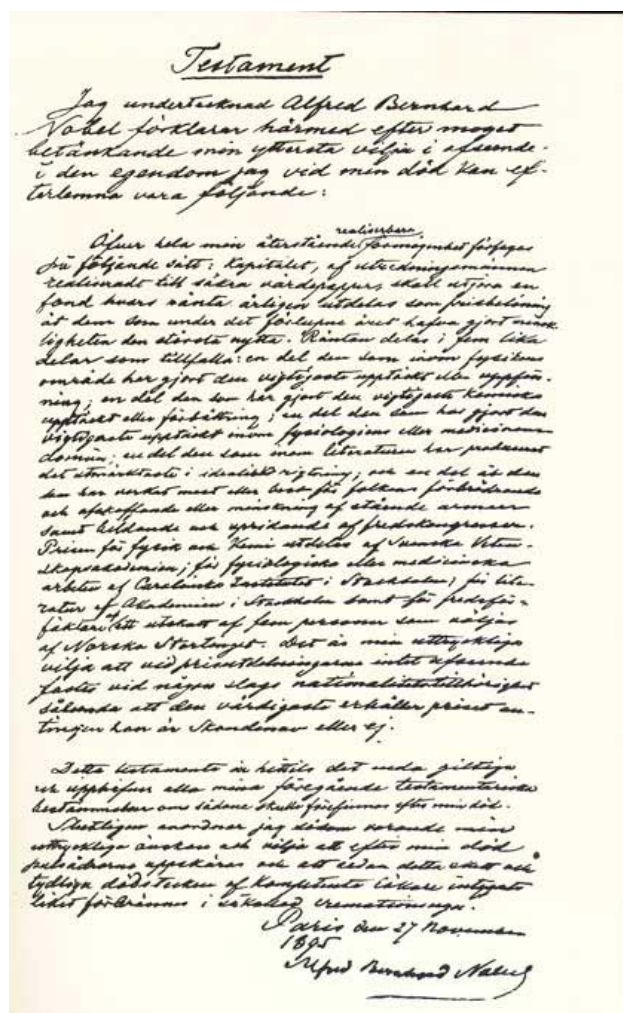 Testament
Jag undertecknad Alfred Bernhard
Nobel förklarar härmed efter moget
betänkande min yttersta vilja i afseende
å den egendom jag vid min död kan ef-
terlemna vara följande:
realiserbara
Öfver hela min återstående förmögenhet förfoges
på följande sätt: Kapitalet, af utredningsmännen
realiseradt till säkra värdepapper, skall utgöra en
fond hvars ränta årligen utdelas som prisbelöning
åt dem som under det förlupne året hafva gjort mensk-
ligheten den största nytta. Räntan delas i fem lika
delar som tillfalla: en del den som inom fysikens
område har gjort den vigtigaste upptäckt eller uppfin-
ning; en del den som har gjort den vigtigaste kemiska
upptäckt eller förbättring; en del den som har gjort den
vigtigaste upptäckt inom fysiologiens eller medicinens
domän; en del den som inom literaturen har producerat
det utmärktaste i idealisk rigtning; och en del åt den
som har verkat mest eller best för folkens förbrödrande
och afskaffande eller minskning af stående armeer
samt bildande och spridande af fredskongresser.
Prisen för fysik och kemi utdelas af Svenska Veten-
skapsakademien; för fysiologiska eller medicinska
arbeten af Carolinska Institutet i Stockholm; för lite-
ratur af Akademien i Stockholm samt för fredsför-
fäktare af ett utskott af fem personer som väljas
af Norska Stortinget. Det är min uttryckliga
vilja att vid prisutdelningarne intet afseende
fästes vid någon slags nationalitetstillhörighet
sålunda att den värdigaste erhåller priset an-
tingen han är Skandinav eller ej.
Detta testamente är hittills det enda giltiga
och upphäfver alla mina föregående testamentariska
bestämmelser om sådane skulle förefinnas efter min död.
Slutligen anordnar jag såsom varande min
uttryckliga önskan och vilja att efter min död
pulsådrorna uppskäras och att sedan detta skett och
tydliga dödstecken af kompetenta läkare intygats
liket förbrännes i såkallad cremationsugn.
Paris den 27 November
1895
Alfred Bernhard Nobel